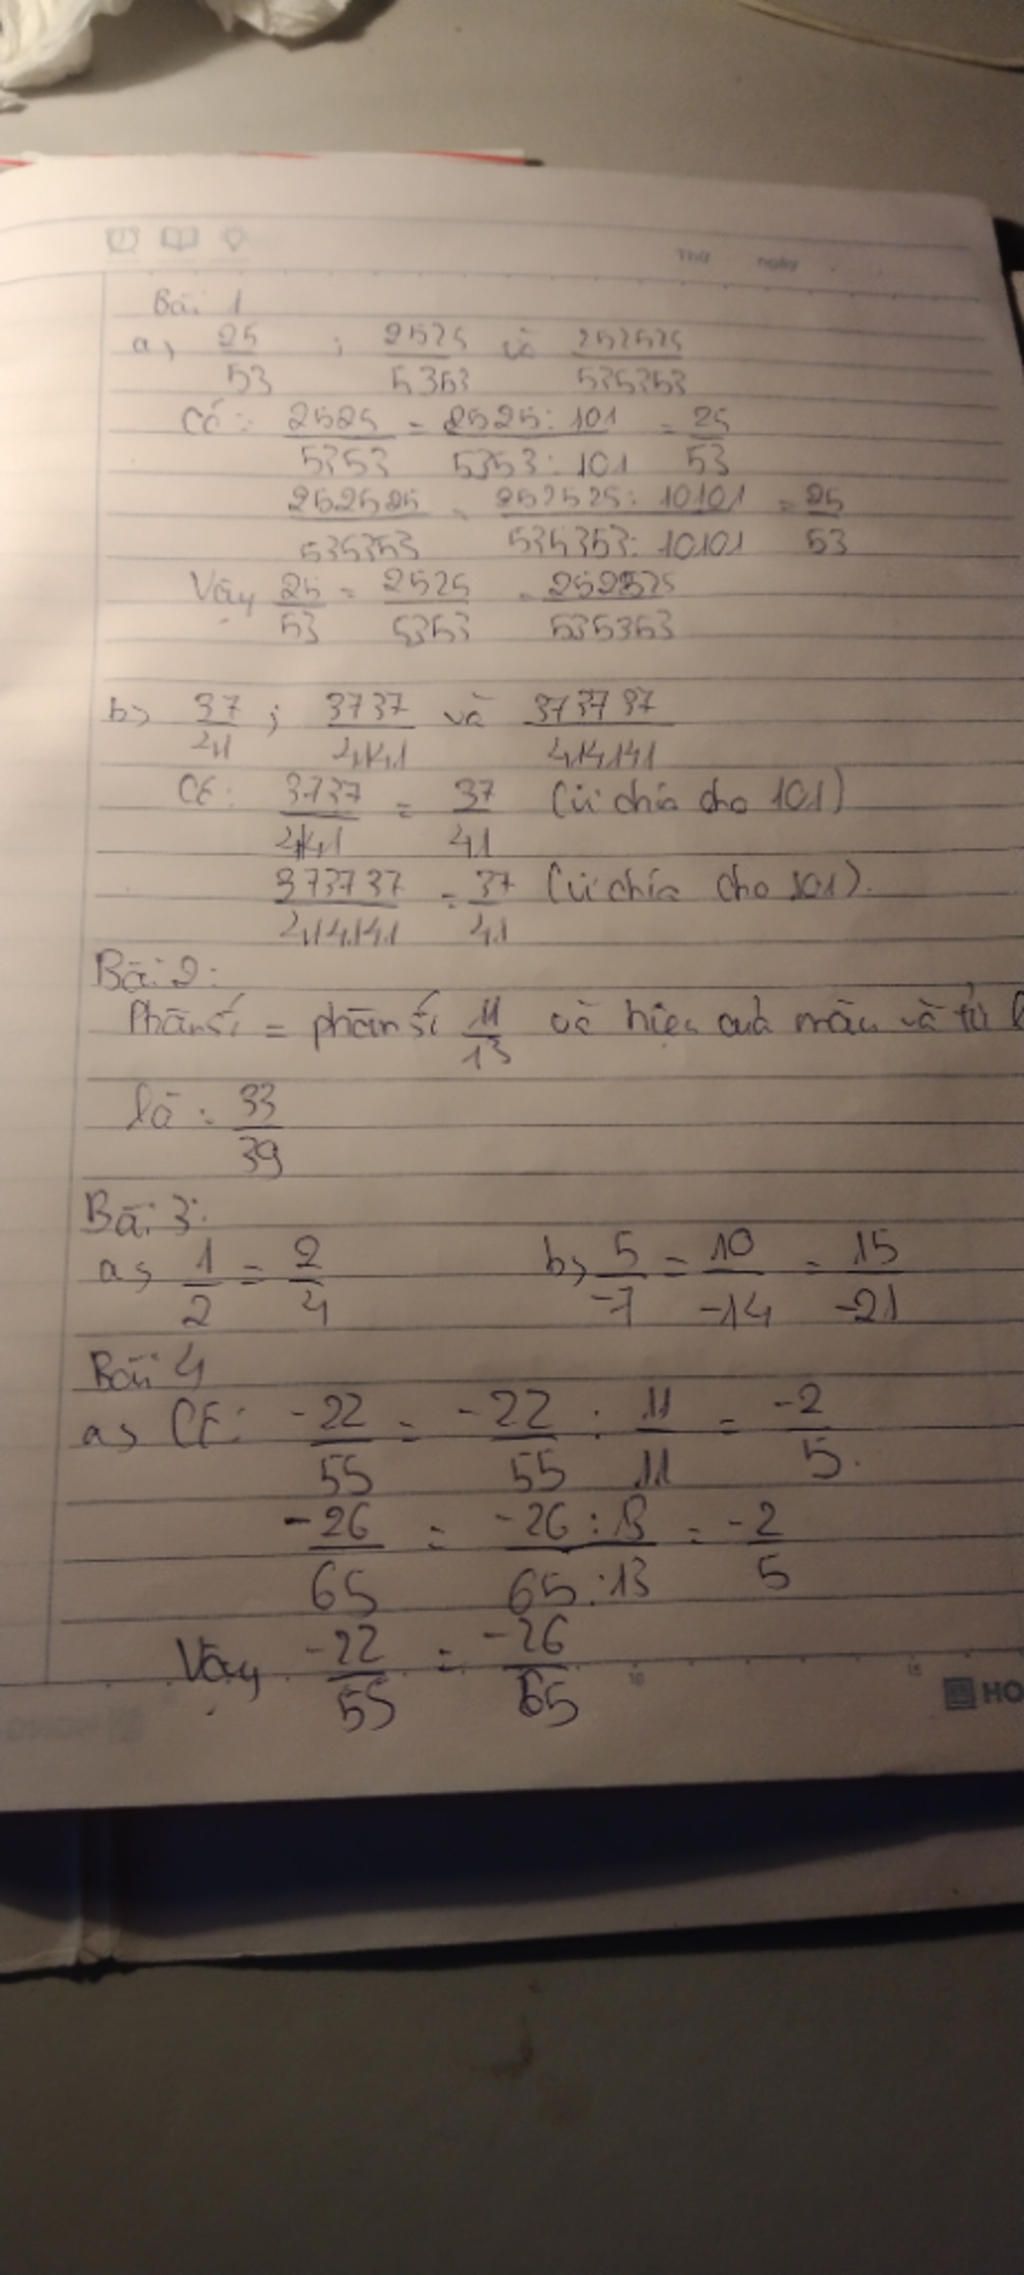 Thứ ngày
Bài 1
a, 25/53 ; 2525/5353 và 252525/535353
Có: 2525/5353 = 2525:101/5353:101 = 25/53
252525/535353 = 252525:10101/535353:10101 = 25/53
Vậy 25/53 = 2525/5353 = 252525/535353
b, 37/41 ; 3737/4141 và 373737/414141
Có: 3737/4141 = 37/41 (vì chia cho 101)
373737/414141 = 37/41 (vì chia cho 101).
Bài 2:
Phân số = phân số 11/13 và hiệu của mẫu và tử
là: 33/39
Bài 3:
a, 1/2 = 2/4 b, 5/-7 = 10/-14 = 15/-21
Bài 4
a, Có: -22/55 = -22/55 : 11/11 = -2/5.
-26/65 = -26:13/65:13 = -2/5
Vậy -22/55 = -26/65
10 15
HO